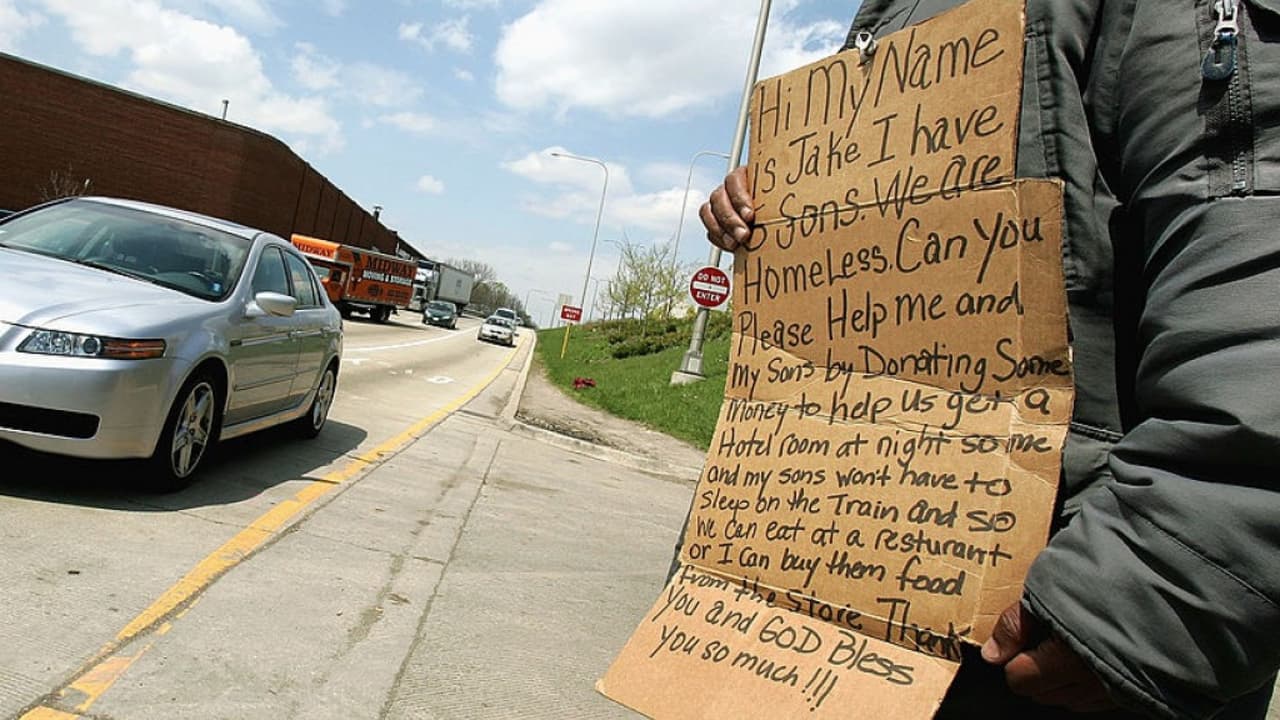 Hi My Name
is Jake I have
Sons. We are
HomeLess. Can You
Please Help me and
my Sons by Donating Some
money to help us get a
Hotel room at night so me
and my sons won't have to
Sleep on the Train and so
we can eat at a resturant
or I Can buy them food
from the Store Thank
You and GOD Bless
you so much!!!
DO NOT
ENTER
WRONG
WAY
MIDWAY
MIDWAY
MOVING & STORAGE